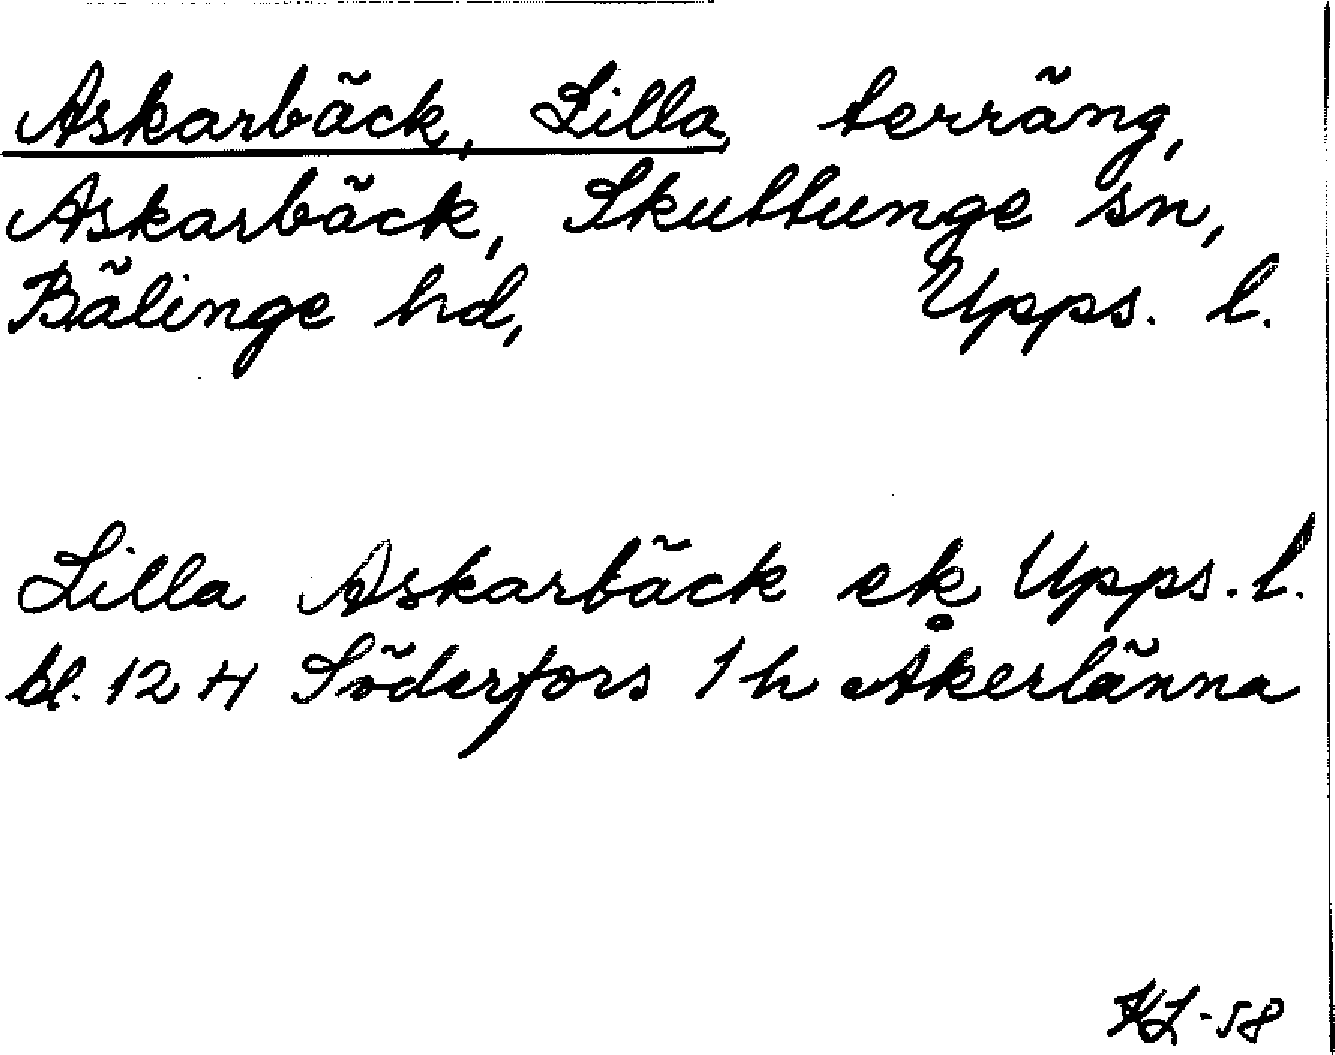 Askarbäck, Lilla, terräng,
Askarbäck, Skuttunge sn,
Bälinge hd, Upps. l.
Lilla Askarbäck ek Upps. l.
bl. 124 Söderfors 1 h Åkerlänna
KL-58